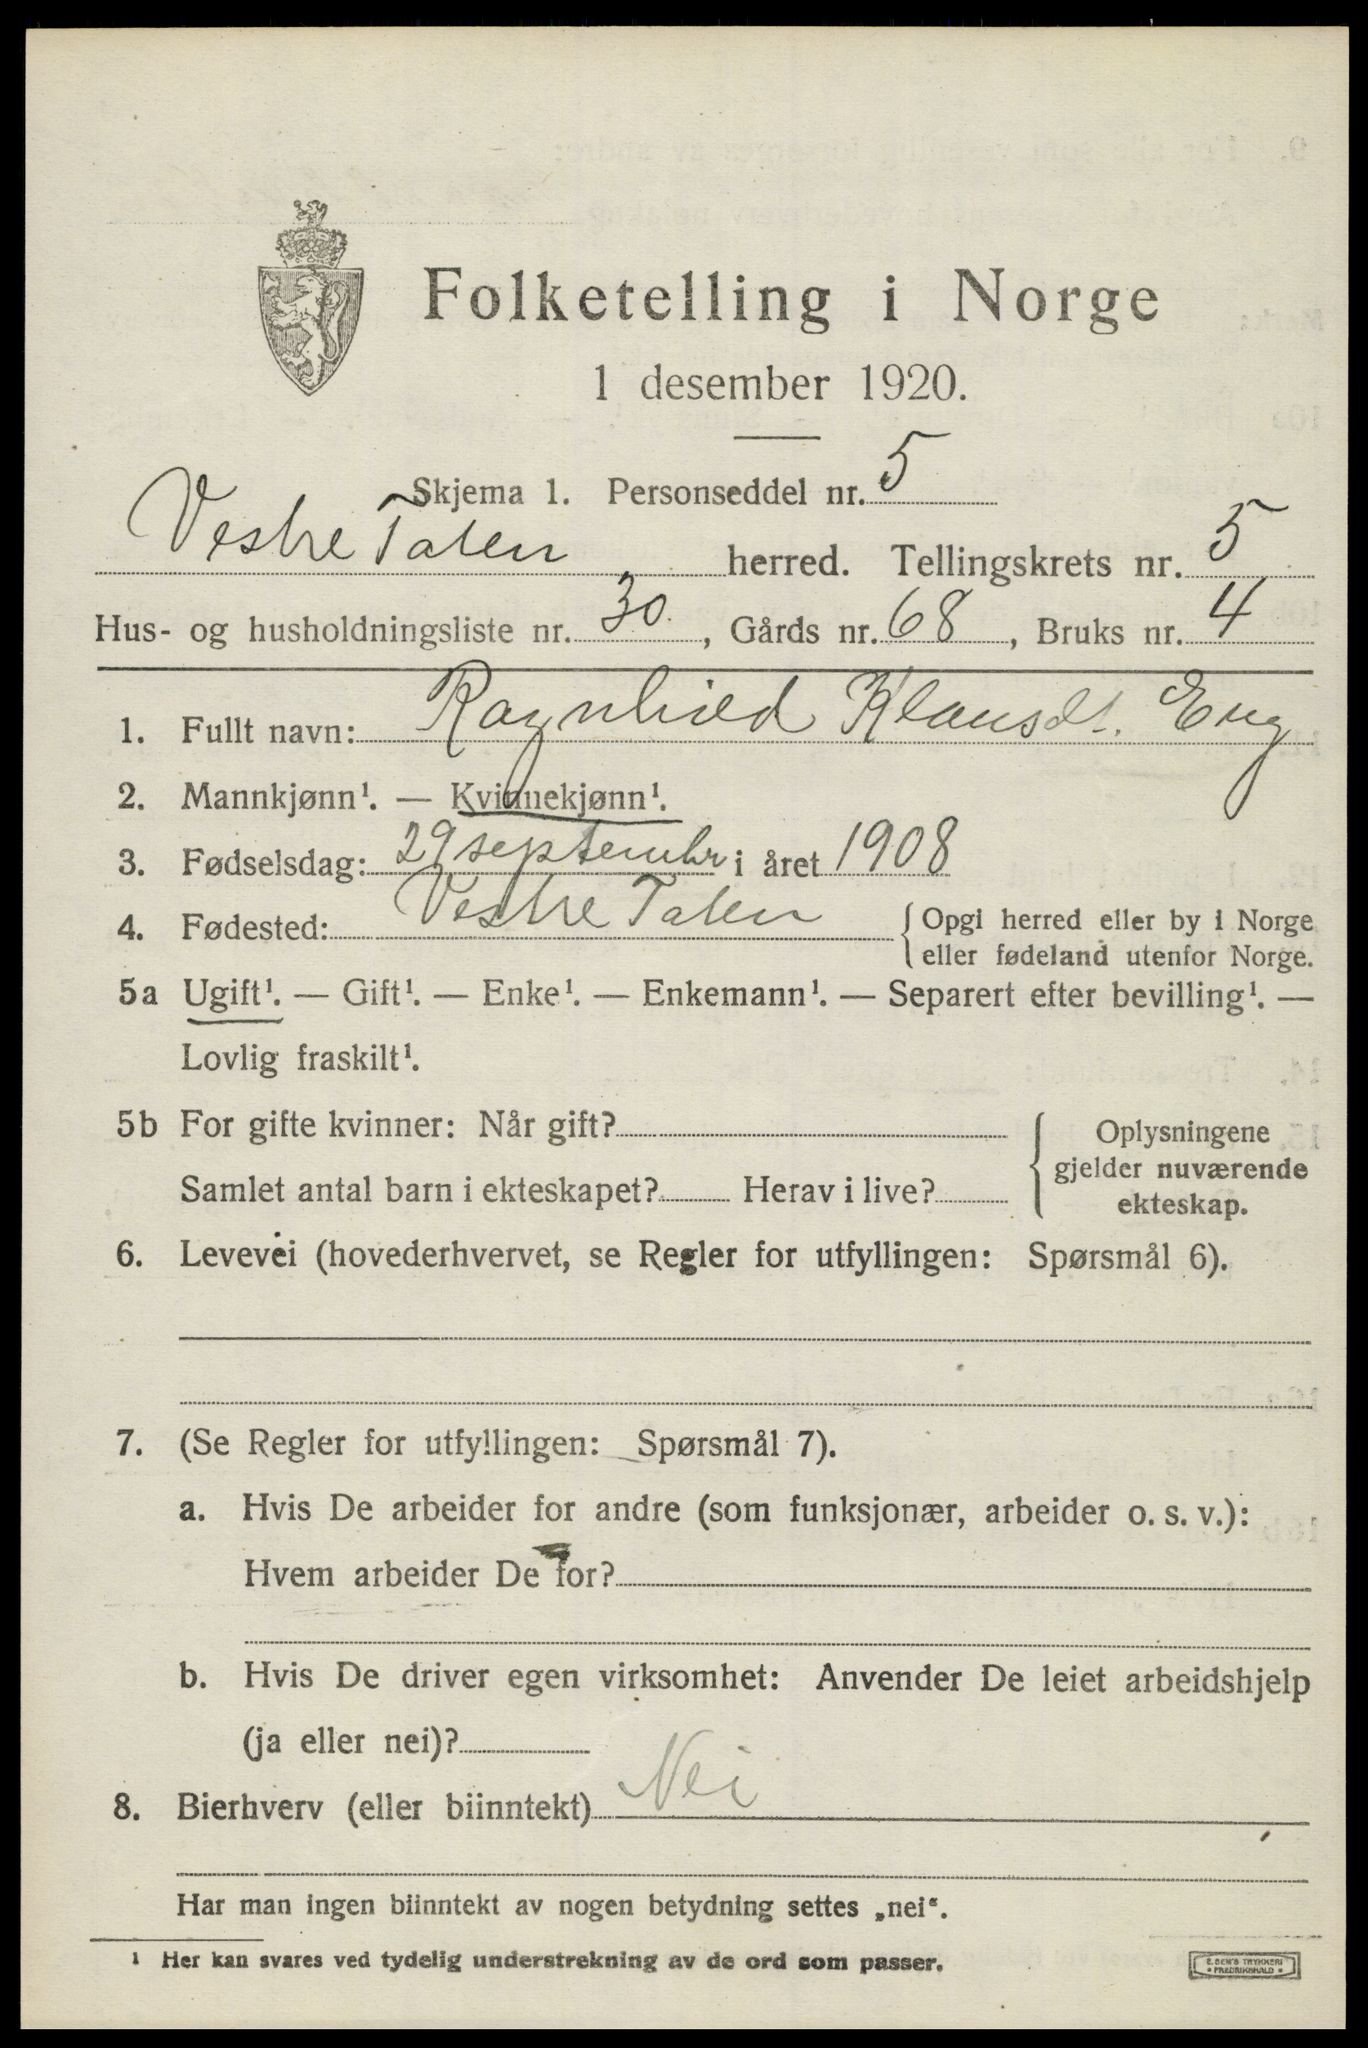 Folketelling i Norge
1 desember 1920.
Skjema 1. Personseddel nr. 5
Vestre Toten herred. Tellingskrets nr. 5
Hus- og husholdningsliste nr. 30, Gårds nr. 68, Bruks nr. 4
1. Fullt navn: Ragnhild Klausdt. Eng
2. Mannkjønn¹. — Kvinnekjønn¹.
3. Fødselsdag: 29 septembr i året 1908
4. Fødested: Vestre Toten {Opgi herred eller by i Norge
eller fødeland utenfor Norge.
5a Ugift¹. — Gift¹. — Enke¹. — Enkemann¹. — Separert efter bevilling¹. —
Lovlig fraskilt¹.
5b For gifte kvinner: Når gift? { Oplysningene
gjelder nuværende
Samlet antal barn i ekteskapet? Herav i live? ekteskap.
6. Levevei (hovederhvervet, se Regler for utfyllingen: Spørsmål 6).
7. (Se Regler for utfyllingen: Spørsmål 7).
a. Hvis De arbeider for andre (som funksjonær, arbeider o. s. v.):
Hvem arbeider De for?
b. Hvis De driver egen virksomhet: Anvender De leiet arbeidshjelp
(ja eller nei)?
8. Bierhverv (eller biinntekt) Nei
Har man ingen biinntekt av nogen betydning settes „nei“.
¹ Her kan svares ved tydelig understrekning av de ord som passer.
E. SEM'S TRYKKERI
• FREDRIKSHALD •